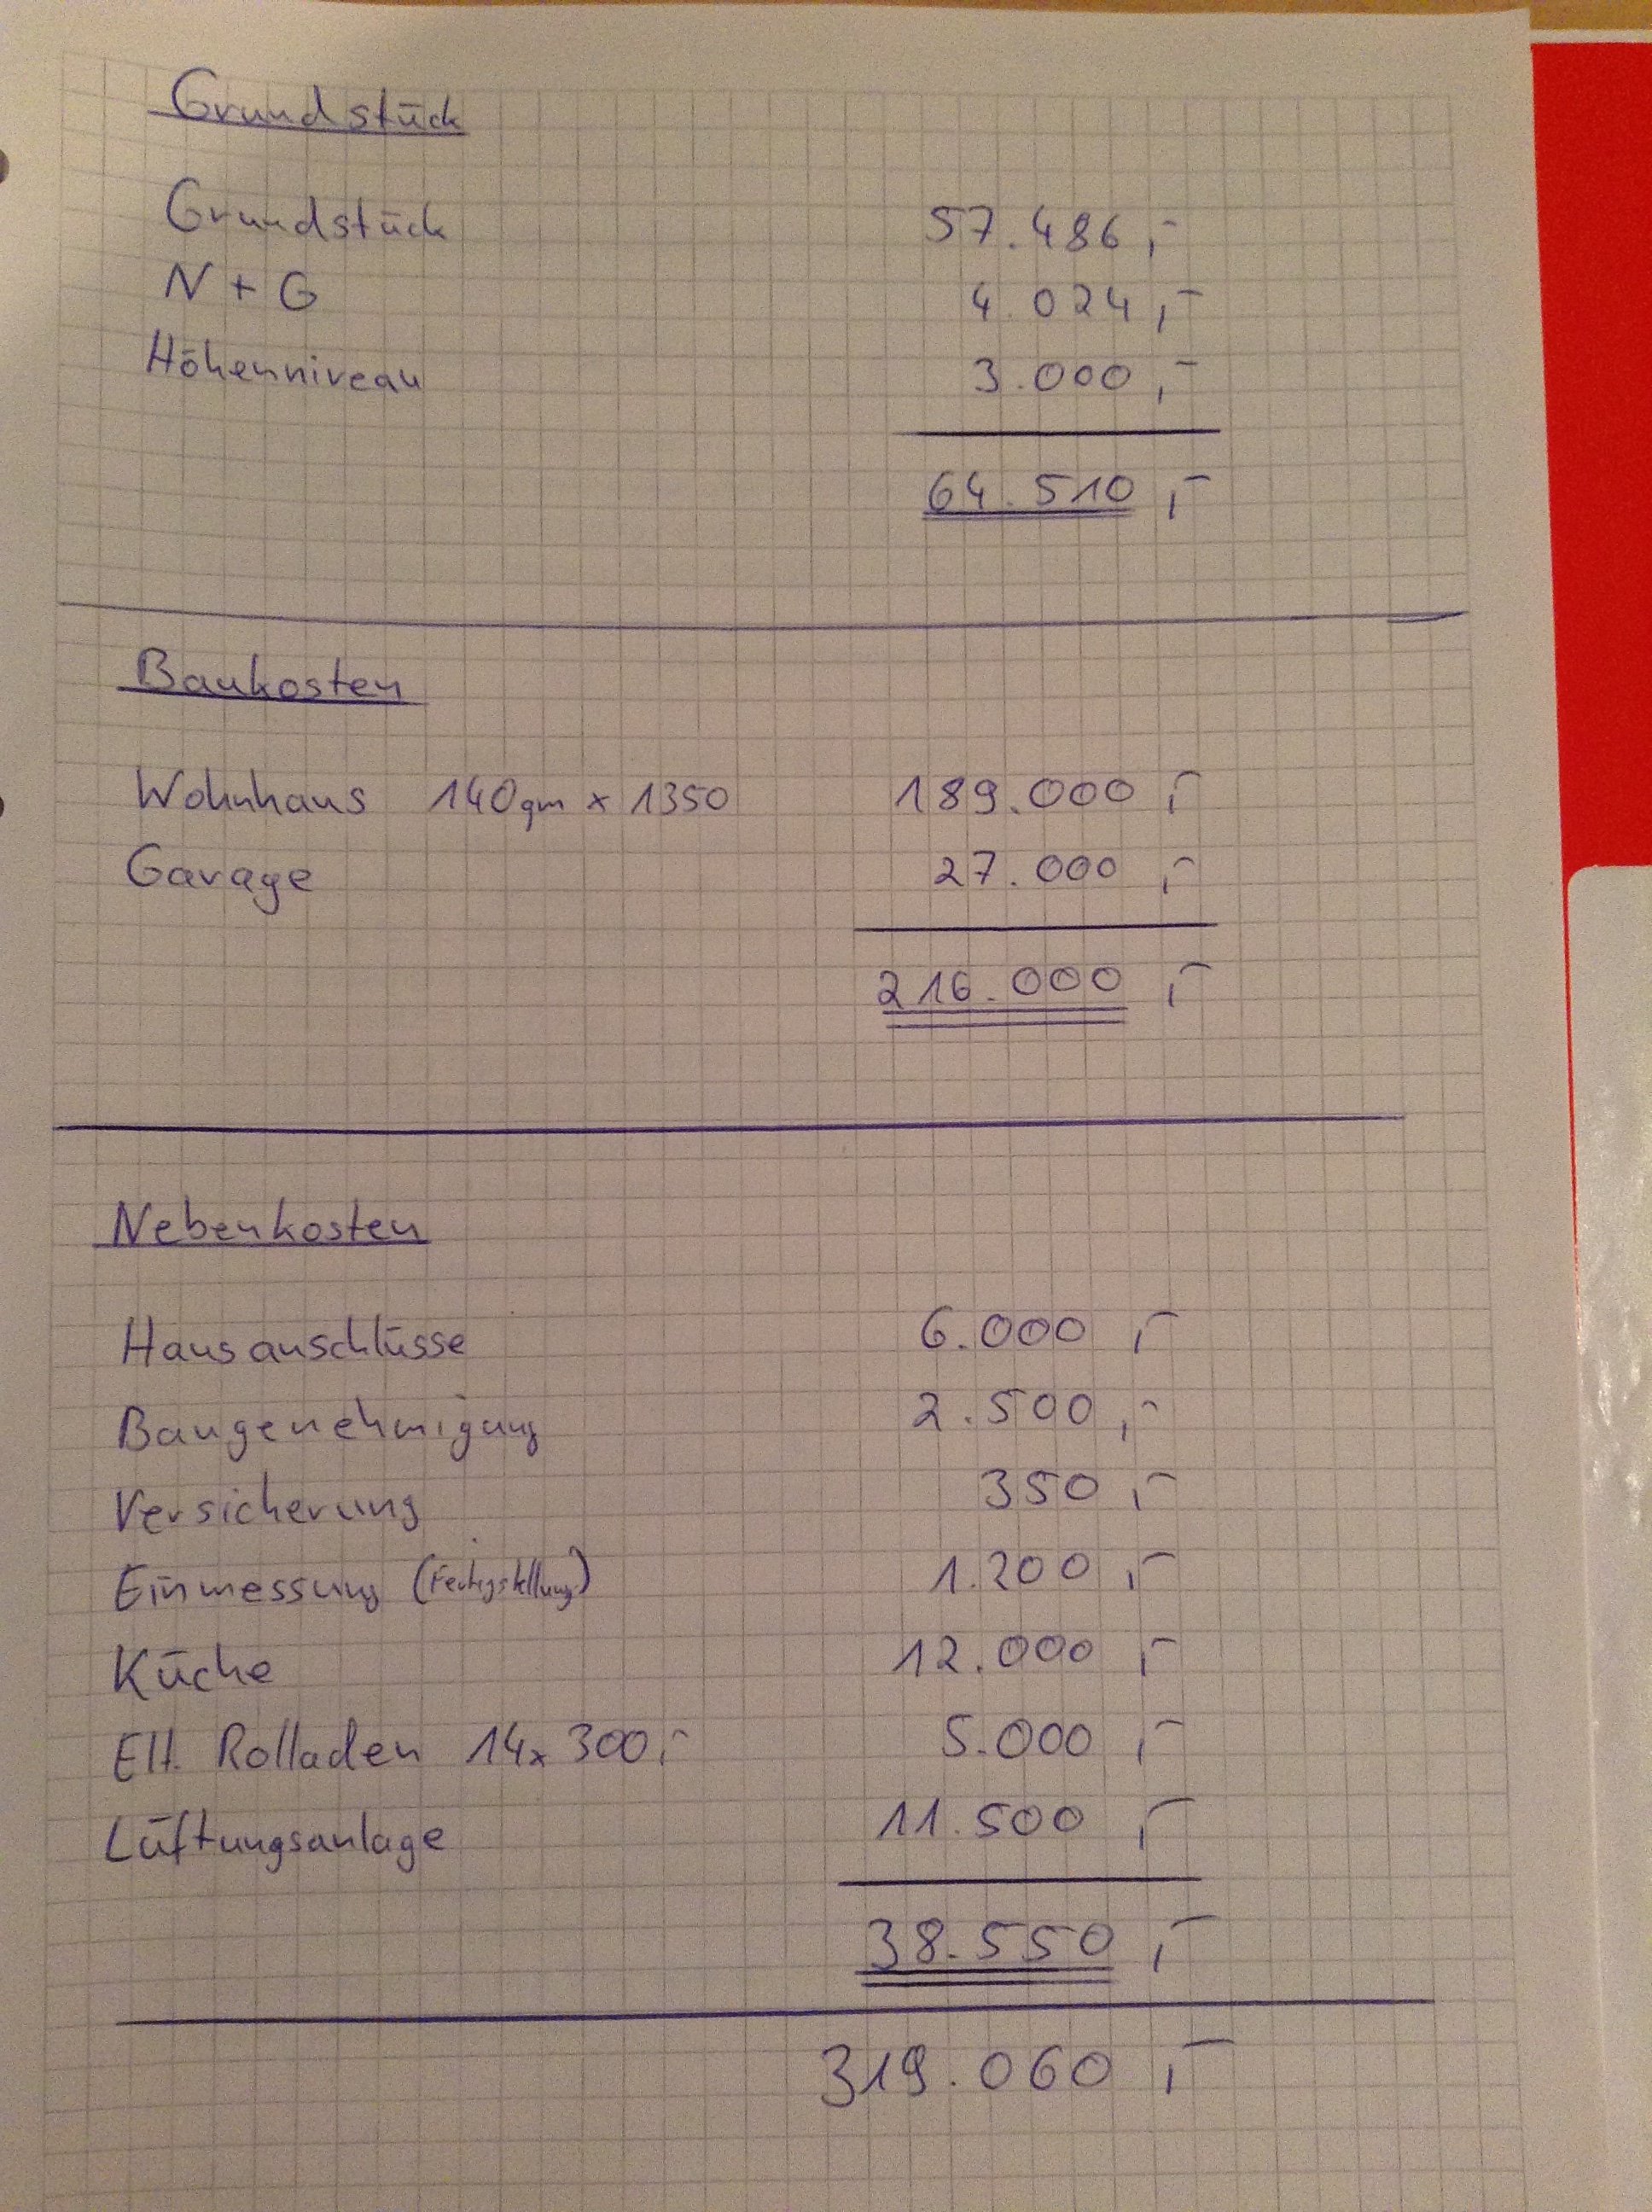 Grundstück
Grundstück 57.486,-
N + G 4.024,-
Höhenniveau 3.000,-
64.510,-
Baukosten
Wohnhaus 140qm x 1350 189.000,-
Garage 27.000,-
216.000,-
Nebenkosten
Hausanschlüsse 6.000,-
Baugenehmigung 2.500,-
Versicherung 350,-
Einmessung (Fertigstellung) 1.200,-
Küche 12.000,-
Elt. Rolladen 14x 300,- 5.000,-
Lüftungsanlage 11.500,-
38.550,-
319.060,-